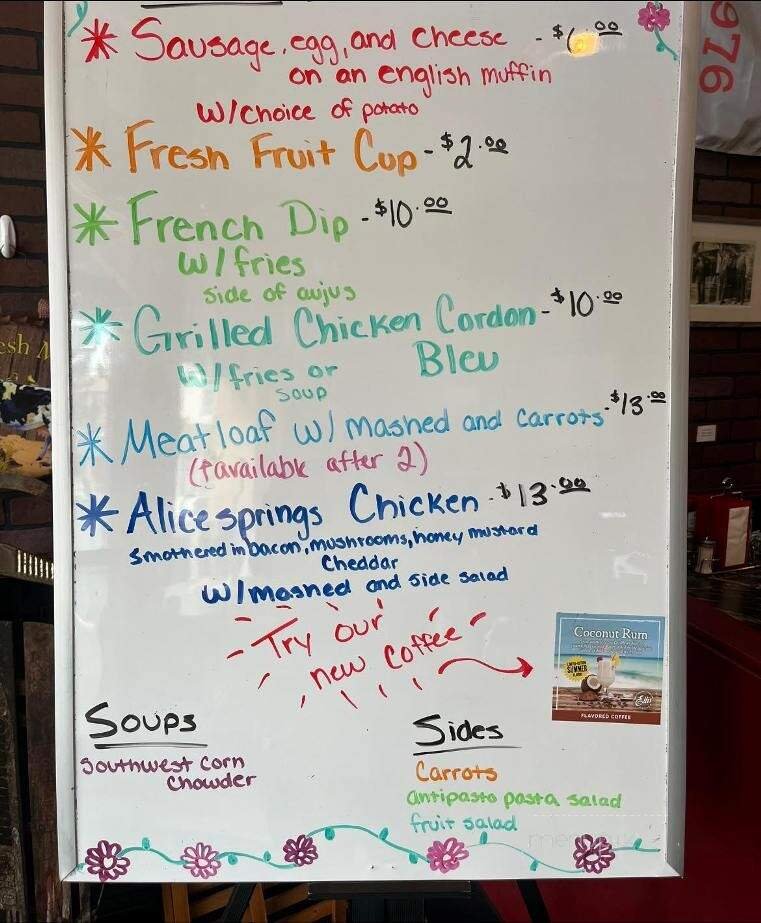 * Sausage, egg, and cheese - $6.00
on an english muffin
w/choice of potato
* Fresh Fruit Cup - $2.00
* French Dip - $10.00
w/fries
side of aujus
* Grilled Chicken Cordon - $10.00
Bleu
w/fries or
soup
* Meatloaf w/ mashed and carrots - $13.00
(*available after 2)
* Alice springs Chicken - $13.00
smothered in bacon, mushrooms, honey mustard
Cheddar
w/mashed and side salad
Try our
new coffee
Coconut Rum
LIMITED EDITION
SUMMER
FLAVORED COFFEE
Soups
Southwest Corn
Chowder
Sides
Carrots
antipasto pasta salad
fruit salad
976
esh